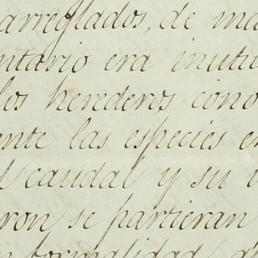 arreglados, de ma
ntario era inutil
los herederos cono
ente las especies e
l caudal y su v
ron se partieran
n formalidad, d